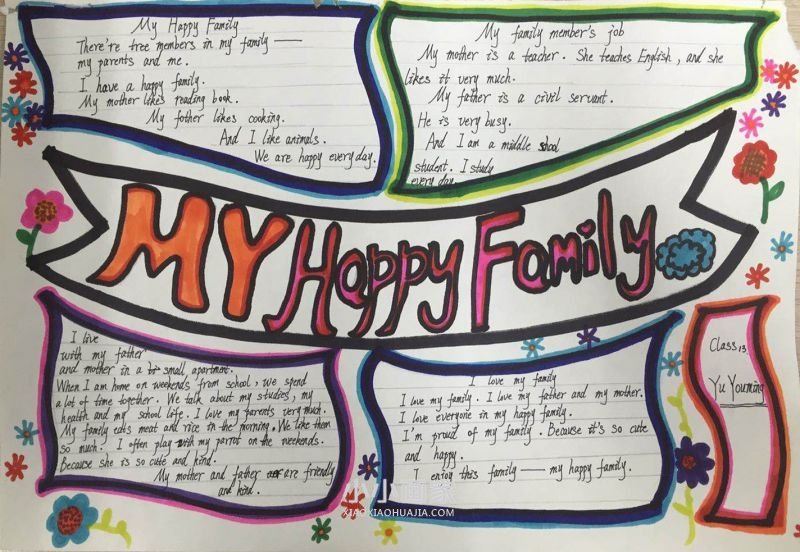 My Happy Family
There're tree members in my family——
my parents and me.
I have a happy family.
My mother likes reading book.
My fother likes cooking.
And I like animals.
We are happy every day.
My family member's job
My mother is a teacher. She teaches English, and she
likes it very much.
My father is a civil servant.
He is very busy.
And I am a middle shool
student. I study
every day.
MY Happy Family
I live
with my father
and mother in a small apartment.
When I am home on weekends from school, we spend
a lot of time together. We talk about my studies, my
health and my school life. I love my parents very much.
My family eats meat and rice in the morning. We like them
so much. I often play with my parrot on the weekends.
Because she is so cute and kind.
My mother and father are friendly
and kind.
I love my family
I love my family. I love my father and my mother.
I love everyone in my happy family.
I'm proud of my family. Because it's so cute
and happy.
I enjoy this family——my happy family.
Class 13
Yu Youming
小小画家
XIAOXIAOHUAJIA.COM